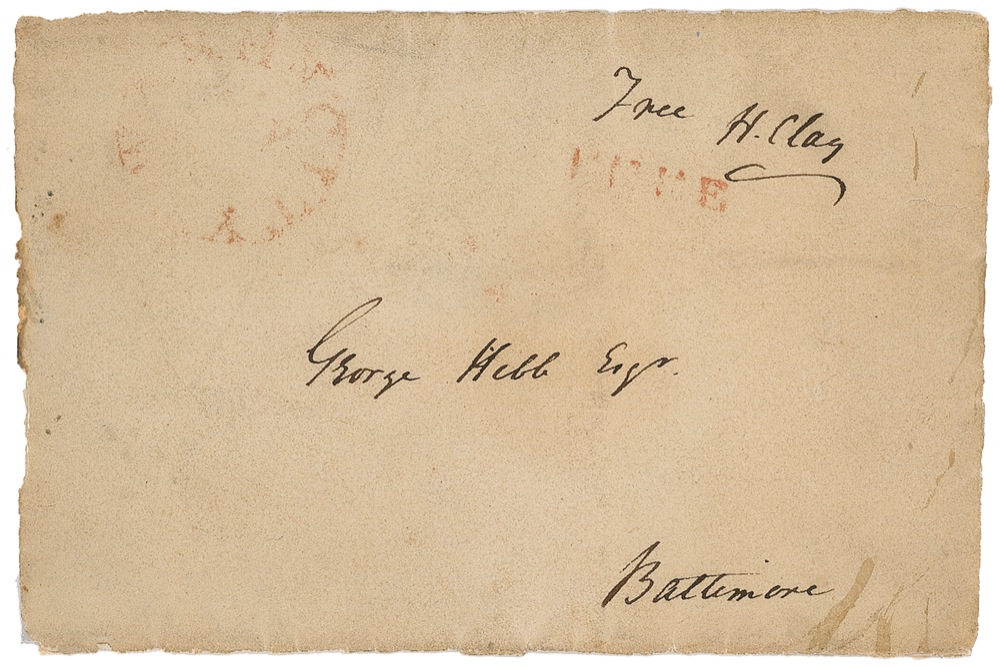 Free H. Clay
FREE
George Hebb Esqr.
Baltimore